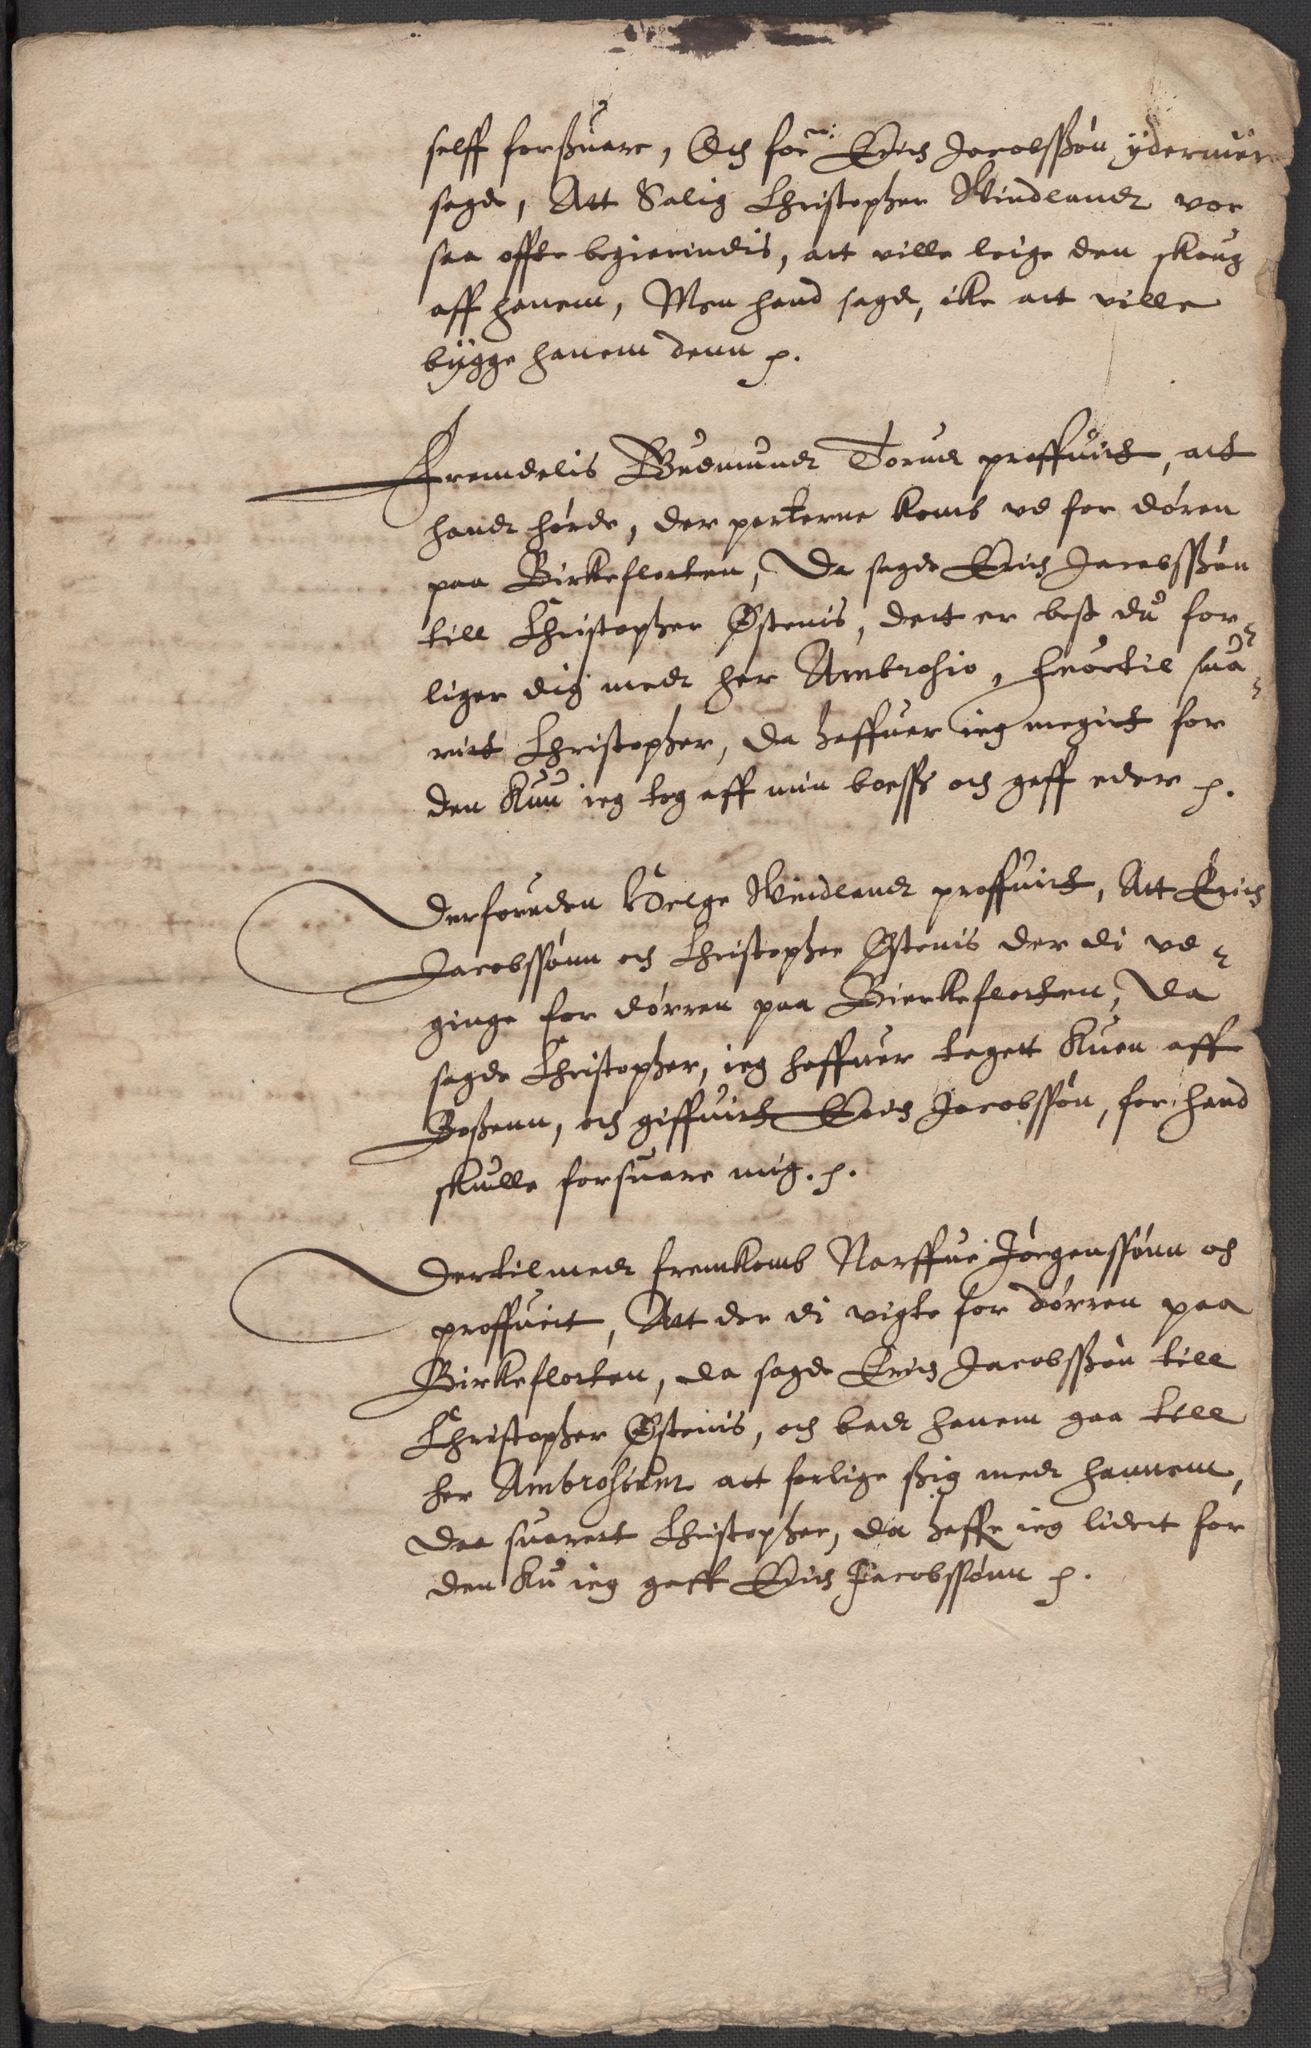 selff forßuare, Och for^ne: Erich Jacobssøn ydermere
sagde, Att Salig Christopher Windlandt vor
saa offte begierindis, att ville leige den skoug
aff hanem, Men hand sagde, ike att ville
bygge hanem denn p.
Fremdelis Gudmundt Torud proffuidt, att
handt hørde, der parterne komb ud for døren
paa Birkeflatten, Da sagde Erich Jacobssøn
till Christopher Østenis, dett er best du for-
liger dig medt her Ambrosio, huortil sua-
ritt Christopher, da haffuer ieg megitt for
den Kuu ieg tog aff min boeßs och gaff eder p.
Derforuden Helge Windlandt proffuitt, Att Erich
Jacobssønn och Christopher Østenis der di ud-
ginge for dørren paa Bierkeflatten, Da
sagde Christopher, ieg haffuer tagett Kuen aff
Boßenn, och giffuitt Erich Jacobssøn, for hand
skulle forsuare mig. p.
Dertilmedt fremkomb Narffue Jørgenssønn och
proffuit, Att der di vigte for dørren paa
Birkeflatten, da sagde Erich Jacobssøn till
Christopher Østenis, och badt hanem gaa till
her Ambrosium att forlige ßig medt hannem,
Daa suarett Christopher, da haffr ieg lidett for
den Ku ieg gaff Erich Jacobssønn p.